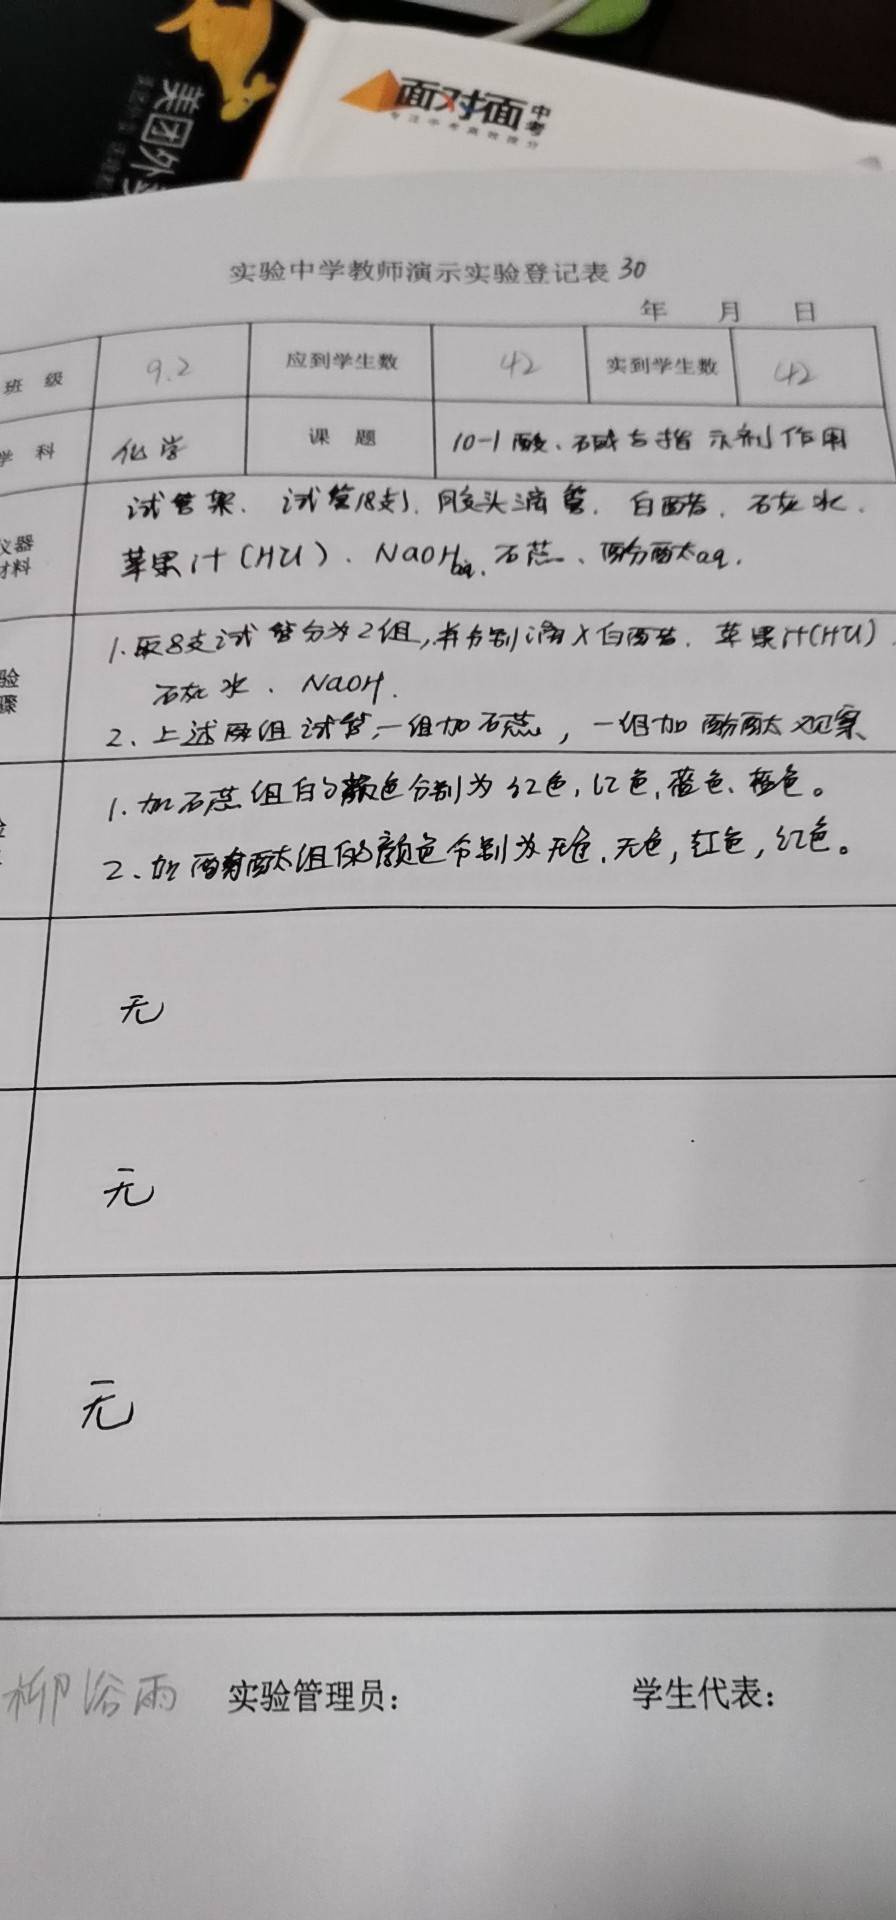 美团外
面对面 中考
专注中考高效提分
实验中学教师演示实验登记表 30
年 月 日
班 级 9.2 应到学生数 42 实到学生数 42
学 科 化学 课 题 10-1 酸、碱与指示剂作用
仪器
材料
试管架、试管(8支)、胶头滴管、白醋、石灰水、
苹果汁(HCl)、NaOHaq、石蕊、酚酞aq.
验
骤
1.取8支试管分为2组,并分别滴入白醋、苹果汁(HCl)、
石灰水、NaOH.
2、上述两组试管,一组加石蕊,一组加酚酞观察
1.加石蕊组的颜色分别为红色,红色,蓝色、蓝色。
2、加酚酞组的颜色分别为无色,无色,红色,红色。
无
无
无
柳浴雨 实验管理员: 学生代表: